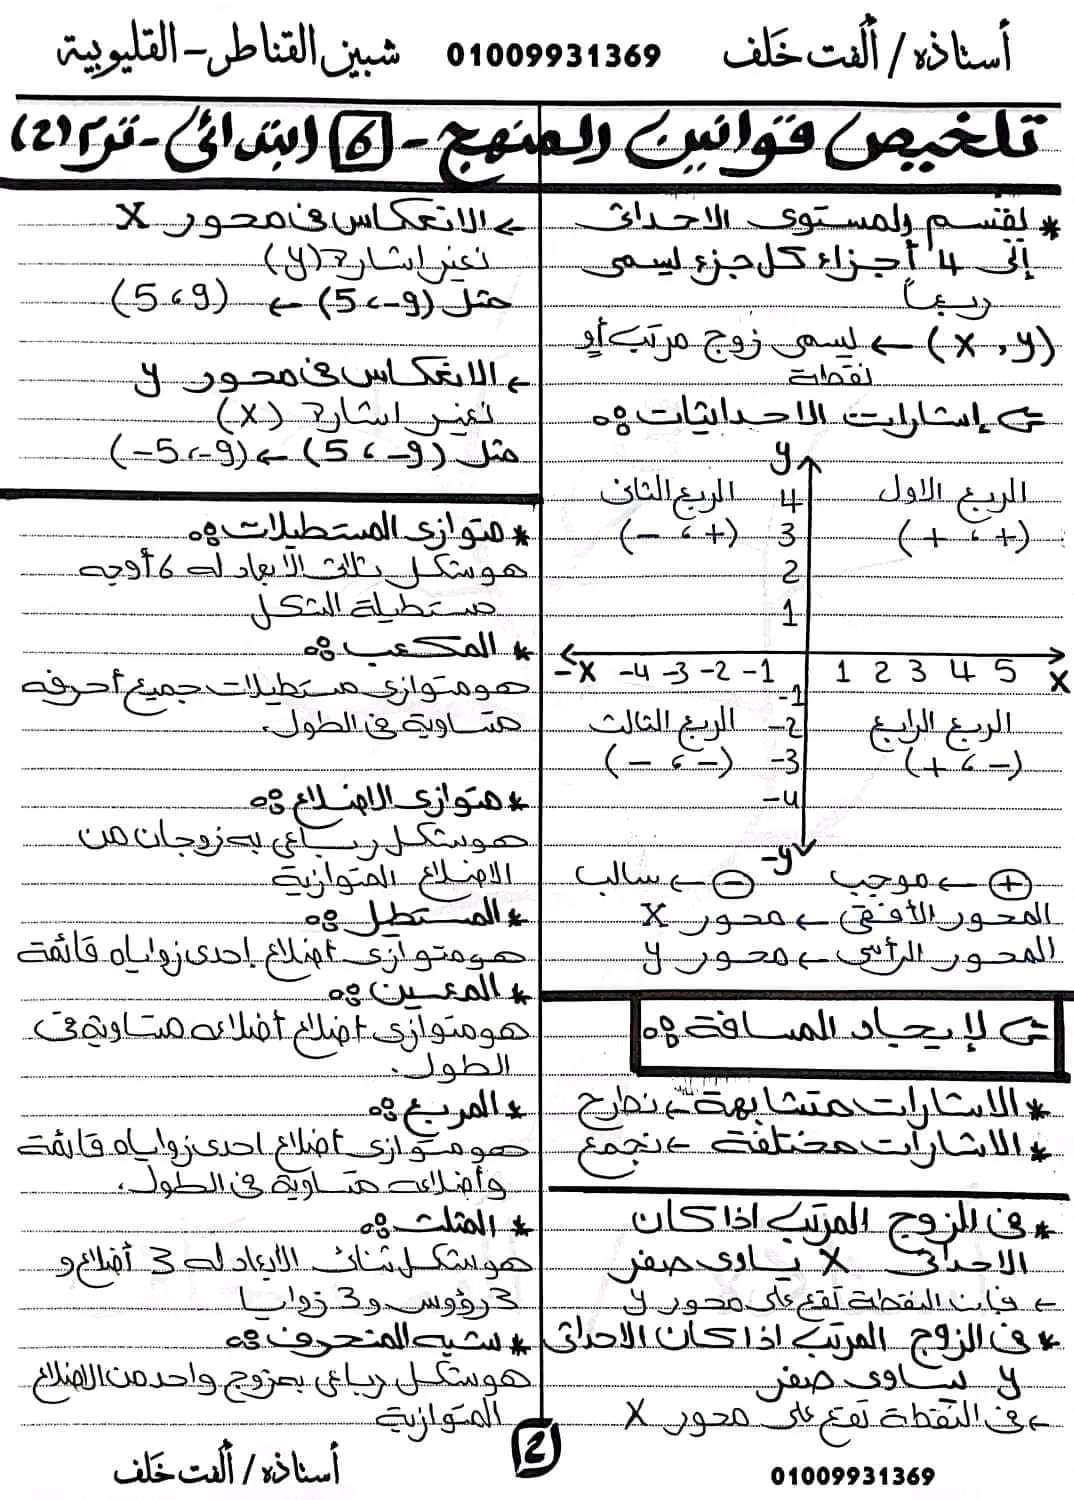 أستاذه/ ألفت خَلف 01009931369 شبين القناطر - القليوبية
تلخيص قوانين المنهج - 6 ابتدائى - ترم (2)
* نقسم المستوى الاحداثى
إلى 4 أجزاء كل جزء يسمى
ربعاً
(x, y) ← يسمى زوج مرتب أو
نقطة
إشارات الاحداثيات
y
الربع الاول
(+ ، +)
الربع الثانى
(- ، +)
4
3
2
1
-x -4 -3 -2 -1 1 2 3 4 5 x
-1
-2
-3
-4
الربع الثالث
(- ، -)
الربع الرابع
(+ ، -)
-y
+ ← موجب - ← سالب
المحور الأفقى ← محور x
المحور الرأسى ← محور y
لإيجاد المسافة
* الاشارات متشابهة ← نطرح
* الاشارات مختلفة ← نجمع
* فى الزوج المرتب اذا كان
الاحداثى x يساوى صفر
← فإن النقطة تقع على محور y
* فى الزوج المرتب اذا كان الاحداثى
y يساوى صفر
← فى النقطة تقع على محور x
← الانعكاس فى محور x
نغير اشارة (y)
مثل (5 ، -9) ← (5 ، 9)
← الانعكاس فى محور y
نغير اشارة (x)
مثل (5 ، -9) ← (-5 ، -9)
* متوازى المستطيلات
هو شكل ثلاثى الأبعاد له 6 أوجه
مستطيلة الشكل
* المكعب
هو متوازى مستطيلات جميع أحرفه
متساوية فى الطول.
* متوازى الاضلاع
هو شكل رباعى به زوجان من
الاضلاع المتوازية
* المستطيل
هو متوازى أضلاع إحدى زواياه قائمة
* المعين
هو متوازى أضلاع أضلاعه متساوية فى
الطول.
* المربع
هو متوازى أضلاع احدى زواياه قائمة
وأضلاعه متساوية فى الطول.
* المثلث
هو شكل ثنائى الأبعاد له 3 أضلاع و
3 رؤوس و 3 زوايا
* شبه المنحرف
هو شكل رباعى به زوج واحد من الاضلاع
المتوازية
2
01009931369
أستاذه/ ألفت خَلف